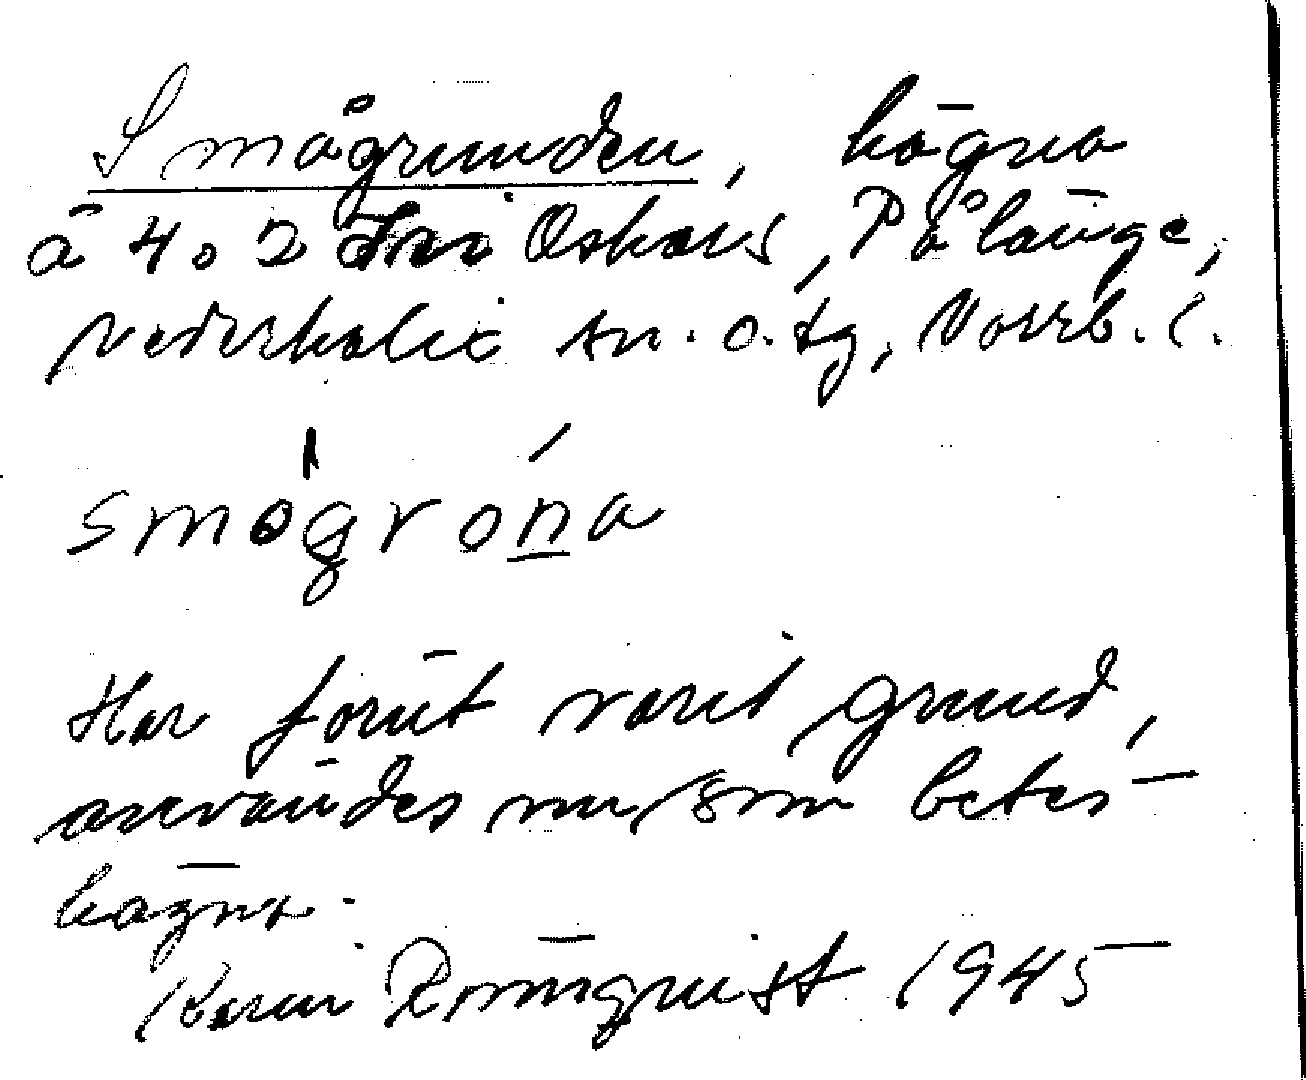 Smågrunden, hägna
å 4 o 2 Oskars, Pålänge,
Nederkalix sn. o. tg, Norrb. l.
smågrona
Har förut varit grund,
användes nu som betes-
hägna.
Karin Rönnquist 1945